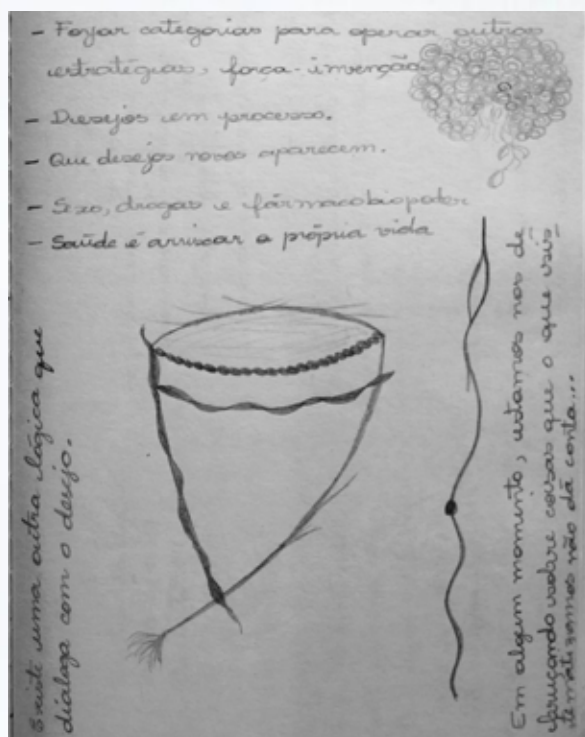 - Forjar categorias para operar outras
estratégias, força-invenção.
- Desejos em processo.
- Que desejos novos aparecem.
- Sexo, drogas e fármacobiopoder
- Saúde é arriscar a própria vida
Existe uma outra lógica que
dialoga com o desejo.
Em algum momento, estamos nos de-
bruçando sobre coisas que o que sis-
tematizamos não dá conta...